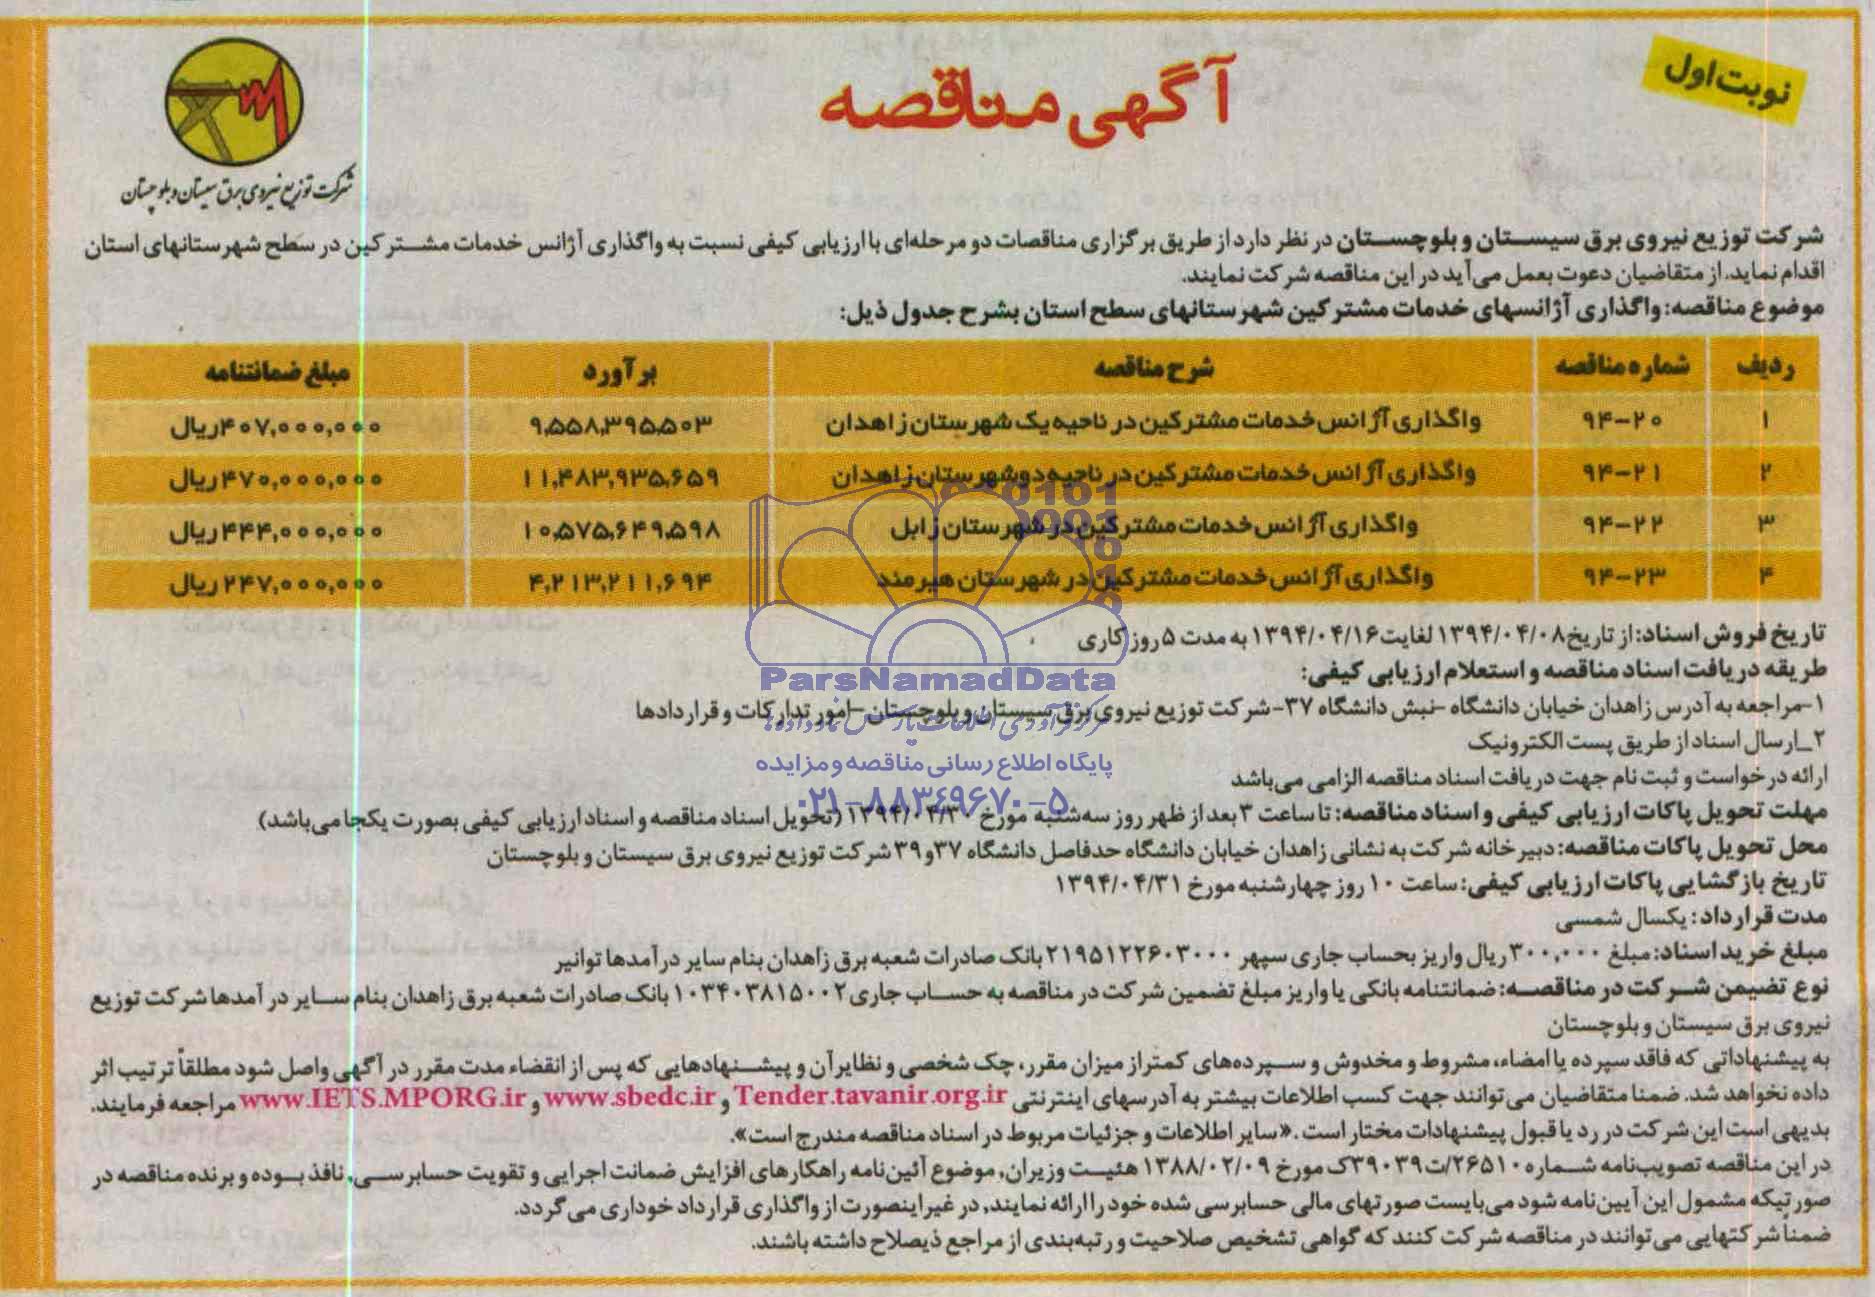 نوبت اول
آگهی مناقصه
شرکت توزیع نیروی برق سیستان و بلوچستان
شرکت توزیع نیروی برق سیستان و بلوچستان در نظر دارد از طریق برگزاری مناقصات دو مرحله‌ای با ارزیابی کیفی نسبت به واگذاری آژانس خدمات مشترکین در سطح شهرستانهای استان
اقدام نماید. از متقاضیان دعوت بعمل می‌آید در این مناقصه شرکت نمایند.
موضوع مناقصه: واگذاری آژانسهای خدمات مشترکین شهرستانهای سطح استان بشرح جدول ذیل:
ردیف شماره مناقصه شرح مناقصه برآورد مبلغ ضمانتنامه
۱ ۹۴-۲۰ واگذاری آژانس خدمات مشترکین در ناحیه یک شهرستان زاهدان ۹,۵۵۸,۳۹۵,۵۰۳ ۴۰۷,۰۰۰,۰۰۰ ریال
۲ ۹۴-۲۱ واگذاری آژانس خدمات مشترکین در ناحیه دو شهرستان زاهدان ۱۱,۴۸۳,۹۳۵,۶۵۹ ۴۷۰,۰۰۰,۰۰۰ ریال
۳ ۹۴-۲۲ واگذاری آژانس خدمات مشترکین در شهرستان زابل ۱۰,۵۷۵,۶۴۹,۵۹۸ ۴۴۴,۰۰۰,۰۰۰ ریال
۴ ۹۴-۲۳ واگذاری آژانس خدمات مشترکین در شهرستان هیرمند ۴,۲۱۳,۲۱۱,۶۹۴ ۲۴۷,۰۰۰,۰۰۰ ریال
تاریخ فروش اسناد: از تاریخ ۱۳۹۴/۰۴/۰۸ لغایت ۱۳۹۴/۰۴/۱۶ به مدت ۵ روز کاری
طریقه دریافت اسناد مناقصه و استعلام ارزیابی کیفی:
ParsNamadData
۱-مراجعه به آدرس زاهدان خیابان دانشگاه -نبش دانشگاه ۳۷- شرکت توزیع نیروی برق سیستان و بلوچستان -امور تدارکات و قراردادها
مرکز فرآوری اطلاعات پارس نماد داده‌ها
۲_ارسال اسناد از طریق پست الکترونیک
پایگاه اطلاع رسانی مناقصه و مزایده
ارائه درخواست و ثبت نام جهت دریافت اسناد مناقصه الزامی می‌باشد
۰۲۱-۸۸۳۴۹۶۷۰-۵
مهلت تحویل پاکات ارزیابی کیفی و اسناد مناقصه: تا ساعت ۳ بعد از ظهر روز سه‌شنبه مورخ ۱۳۹۴/۰۴/۳۰ (تحویل اسناد مناقصه و اسناد ارزیابی کیفی بصورت یکجا می‌باشد)
محل تحویل پاکات مناقصه: دبیرخانه شرکت به نشانی زاهدان خیابان دانشگاه حدفاصل دانشگاه ۳۷ و ۳۹ شرکت توزیع نیروی برق سیستان و بلوچستان
تاریخ بازگشایی پاکات ارزیابی کیفی: ساعت ۱۰ روز چهارشنبه مورخ ۱۳۹۴/۰۴/۳۱
مدت قرارداد: یکسال شمسی
مبلغ خرید اسناد: مبلغ ۳۰۰,۰۰۰ ریال واریز بحساب جاری سپهر ۲۱۹۵۱۲۲۶۰۳۰۰۰ بانک صادرات شعبه برق زاهدان بنام سایر درآمدها توانیر
نوع تضیمن شرکت در مناقصه: ضمانتنامه بانکی یا واریز مبلغ تضمین شرکت در مناقصه به حساب جاری ۱۰۳۴۰۳۸۱۵۰۰۲ بانک صادرات شعبه برق زاهدان بنام سایر در آمدها شرکت توزیع
نیروی برق سیستان و بلوچستان
به پیشنهاداتی که فاقد سپرده یا امضاء، مشروط و مخدوش و سپرده‌های کمتر از میزان مقرر، چک شخصی و نظایر آن و پیشنهادهایی که پس از انقضاء مدت مقرر در آگهی واصل شود مطلقاً ترتیب اثر
داده نخواهد شد. ضمنا متقاضیان می‌توانند جهت کسب اطلاعات بیشتر به آدرسهای اینترنتی Tender.tavanir.org.ir و www.sbedc.ir و www.IETS.MPORG.ir مراجعه فرمایند.
بدیهی است این شرکت در رد یا قبول پیشنهادات مختار است. «سایر اطلاعات و جزئیات مربوط در اسناد مناقصه مندرج است».
در این مناقصه تصویب‌نامه شماره ۲۶۵۱۰/ت۳۹۰۳۹ک مورخ ۱۳۸۸/۰۲/۰۹ هئیت وزیران، موضوع آئین‌نامه راهکارهای افزایش ضمانت اجرایی و تقویت حسابرسی، نافذ بوده و برنده مناقصه در
صورتیکه مشمول این آیین‌نامه شود می‌بایست صورتهای مالی حسابرسی شده خود را ارائه نمایند، در غیر اینصورت از واگذاری قرارداد خوداری می گردد.
ضمناً شرکتهایی می‌توانند در مناقصه شرکت کنند که گواهی تشخیص صلاحیت و رتبه‌بندی از مراجع ذیصلاح داشته باشند.